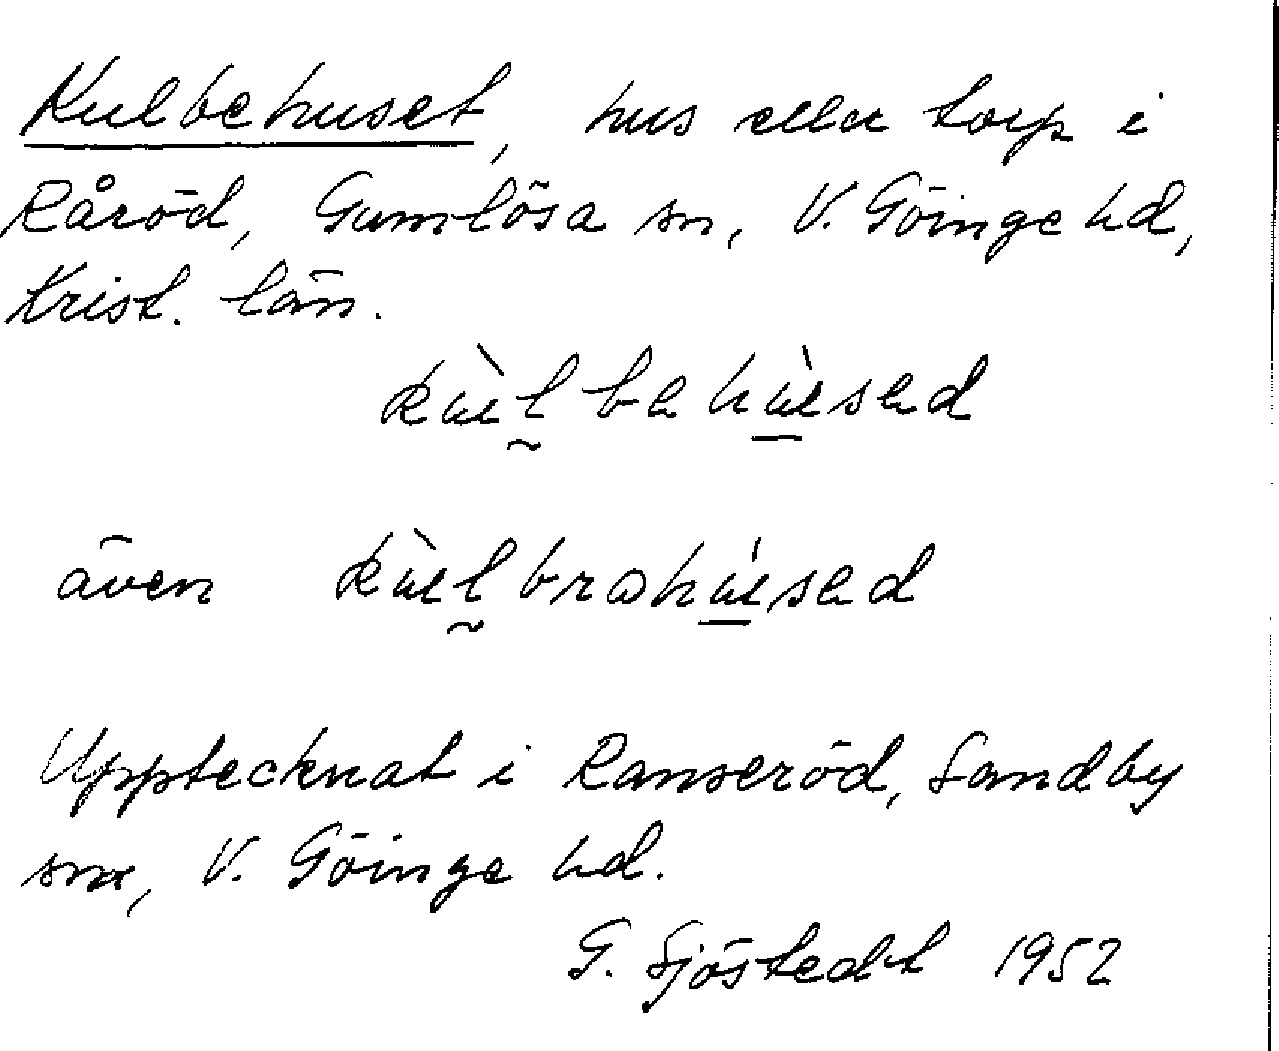 Kulbehuset, hus eller torp i
Råröd, Gumlösa sn, V. Göinge hd,
Krist. län.
kùl̰bahù̲sad
även kùl̰brahù̲sad
Upptecknat i Ranseröd, Sandby
sn, V. Göinge hd.
G. Sjöstedt 1952